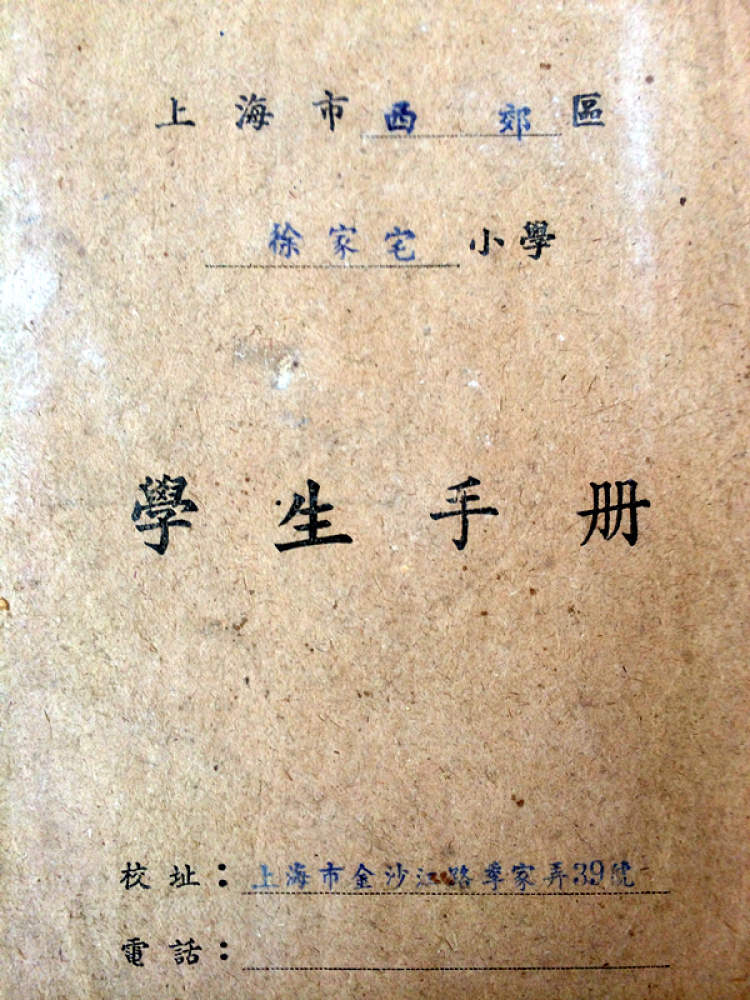 上海市西郊區
徐家宅小學
學生手册
校址：上海市金沙江路李家弄39號
電話：